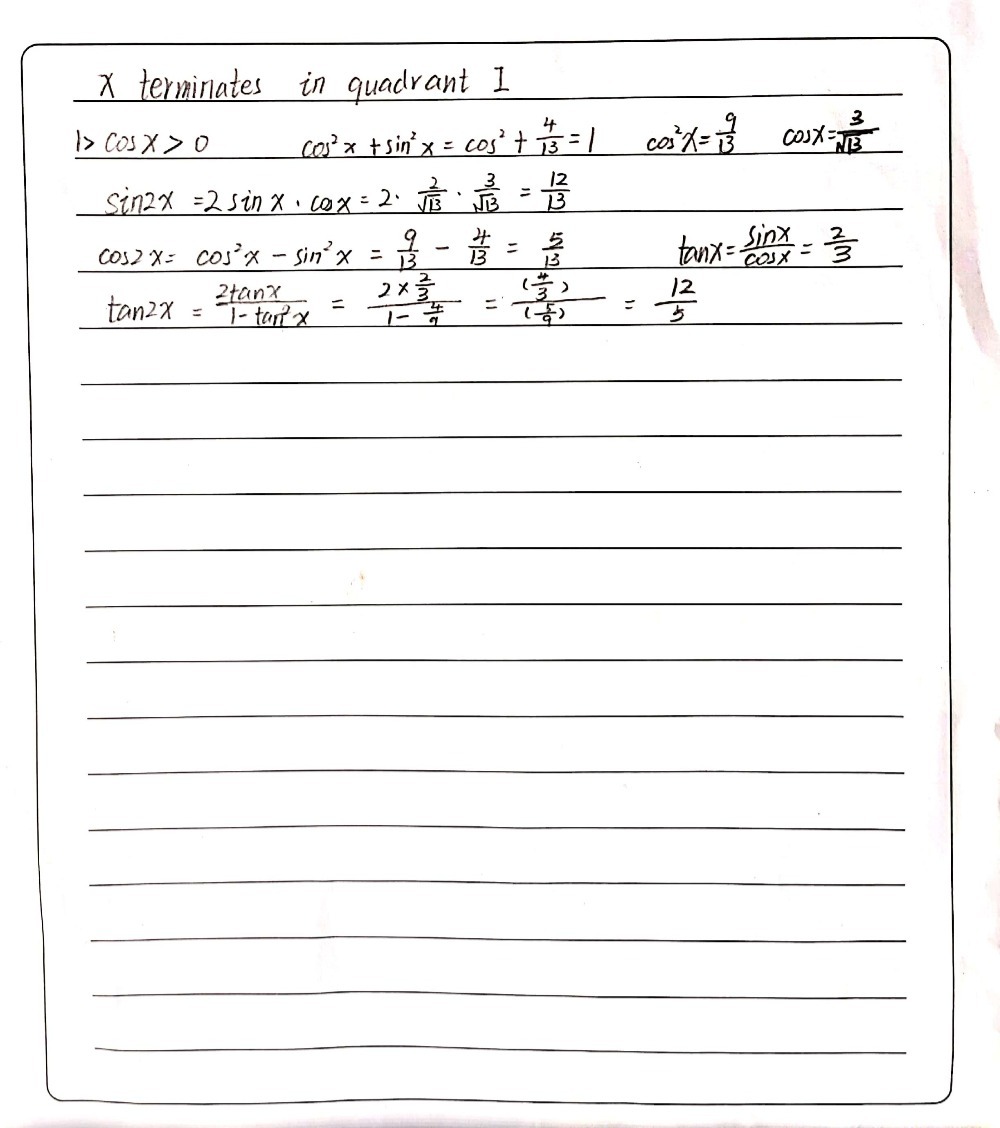 x terminates in quadrant I
1> cosx > 0 cos²x + sin²x = cos² + 4/13 = 1 cos²x = 9/13 cosx = 3/√13
sin2x = 2 sinx · cosx = 2 · 2/√13 · 3/√13 = 12/13
cos2x = cos²x - sin²x = 9/13 - 4/13 = 5/13 tanx = sinx/cosx = 2/3
tan2x = 2tanx/1-tan²x = 2×2/3/1-4/9 = (4/3)/(5/9) = 12/5